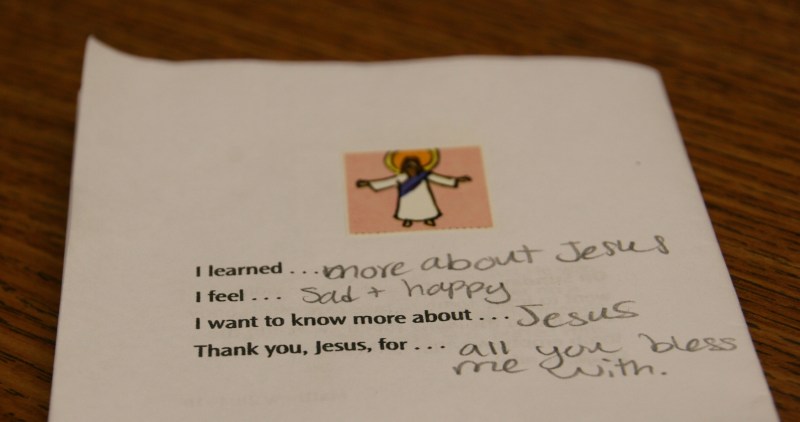 I learned ... more about Jesus
I feel ... Sad + happy
I want to know more about ... Jesus
Thank you, Jesus, for ... all you bless
me with.